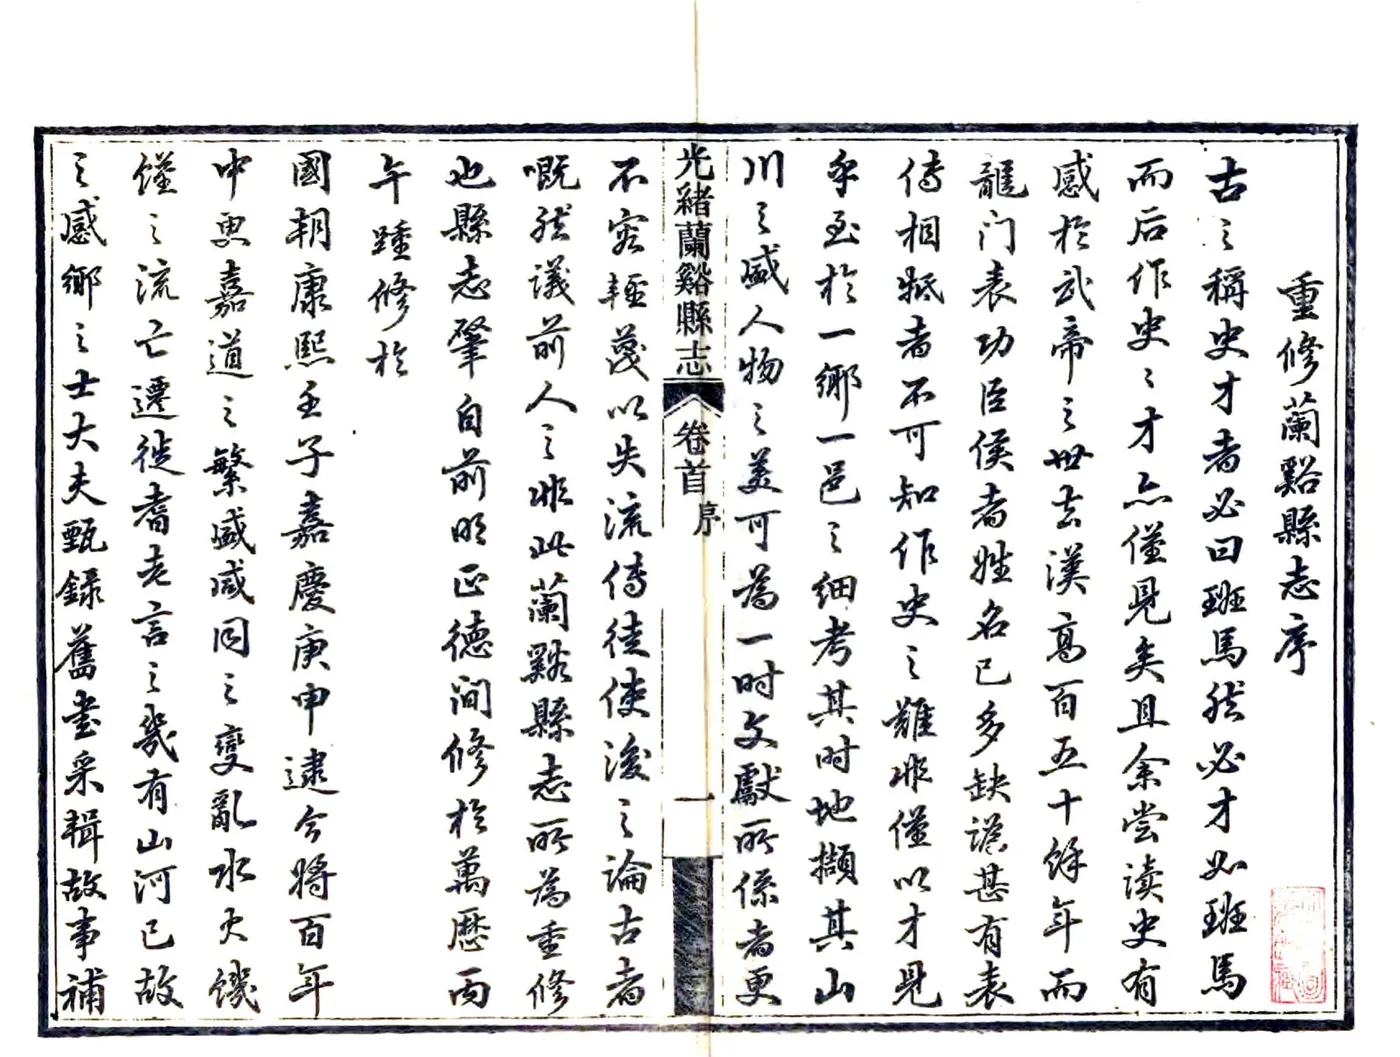 重修蘭谿縣志序
古之稱史才者必曰班馬然必才如班馬
而后作史〻才亦僅見矣且余嘗读史有
感於武帝之世去漢高百五十餘年而
龍门表功臣侯者姓名已多缺謬甚有表
傳相牴者不可知作史之難非僅以才見
乎至於一鄉一邑之細考其时地擷其山
川之盛人物之美可為一时文獻所係者更
光緒蘭谿縣志
卷首
序
一
不容輕蔑以失流傳徒使後之論古者
嘅然議前人之非此蘭谿縣志所為重修
也縣志肇自前明正德间修於萬歷丙
午踵修於
國朝康熙壬子嘉慶庚申逮今將百年
中更嘉道之繁盛咸同之變亂水火饑
饉之流亡遷徙耆老言之幾有山河已故
之感鄉之士大夫甄錄舊畫采輯故事補